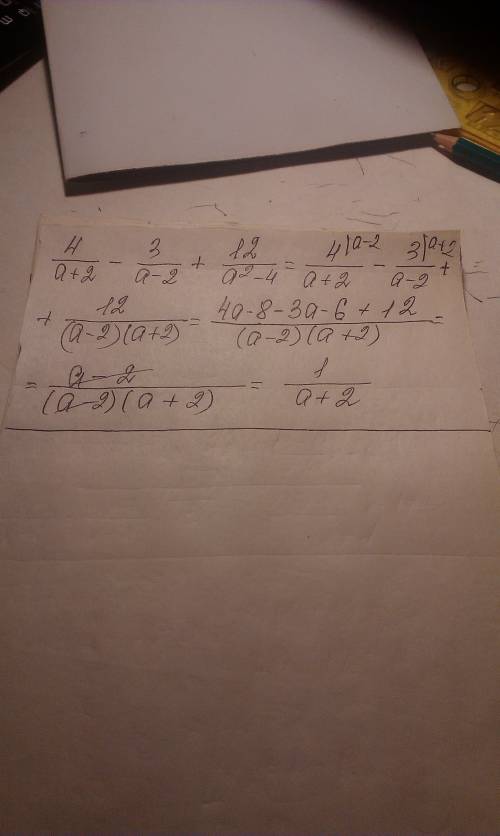 4/(a+2) - 3/(a-2) + 12/(a²-4) = 4|a-2/(a+2) - 3|a+2/(a-2) +
+ 12/((a-2)(a+2)) = (4a-8-3a-6+12)/((a-2)(a+2)) =
= (a-2)/((a-2)(a+2)) = 1/(a+2)